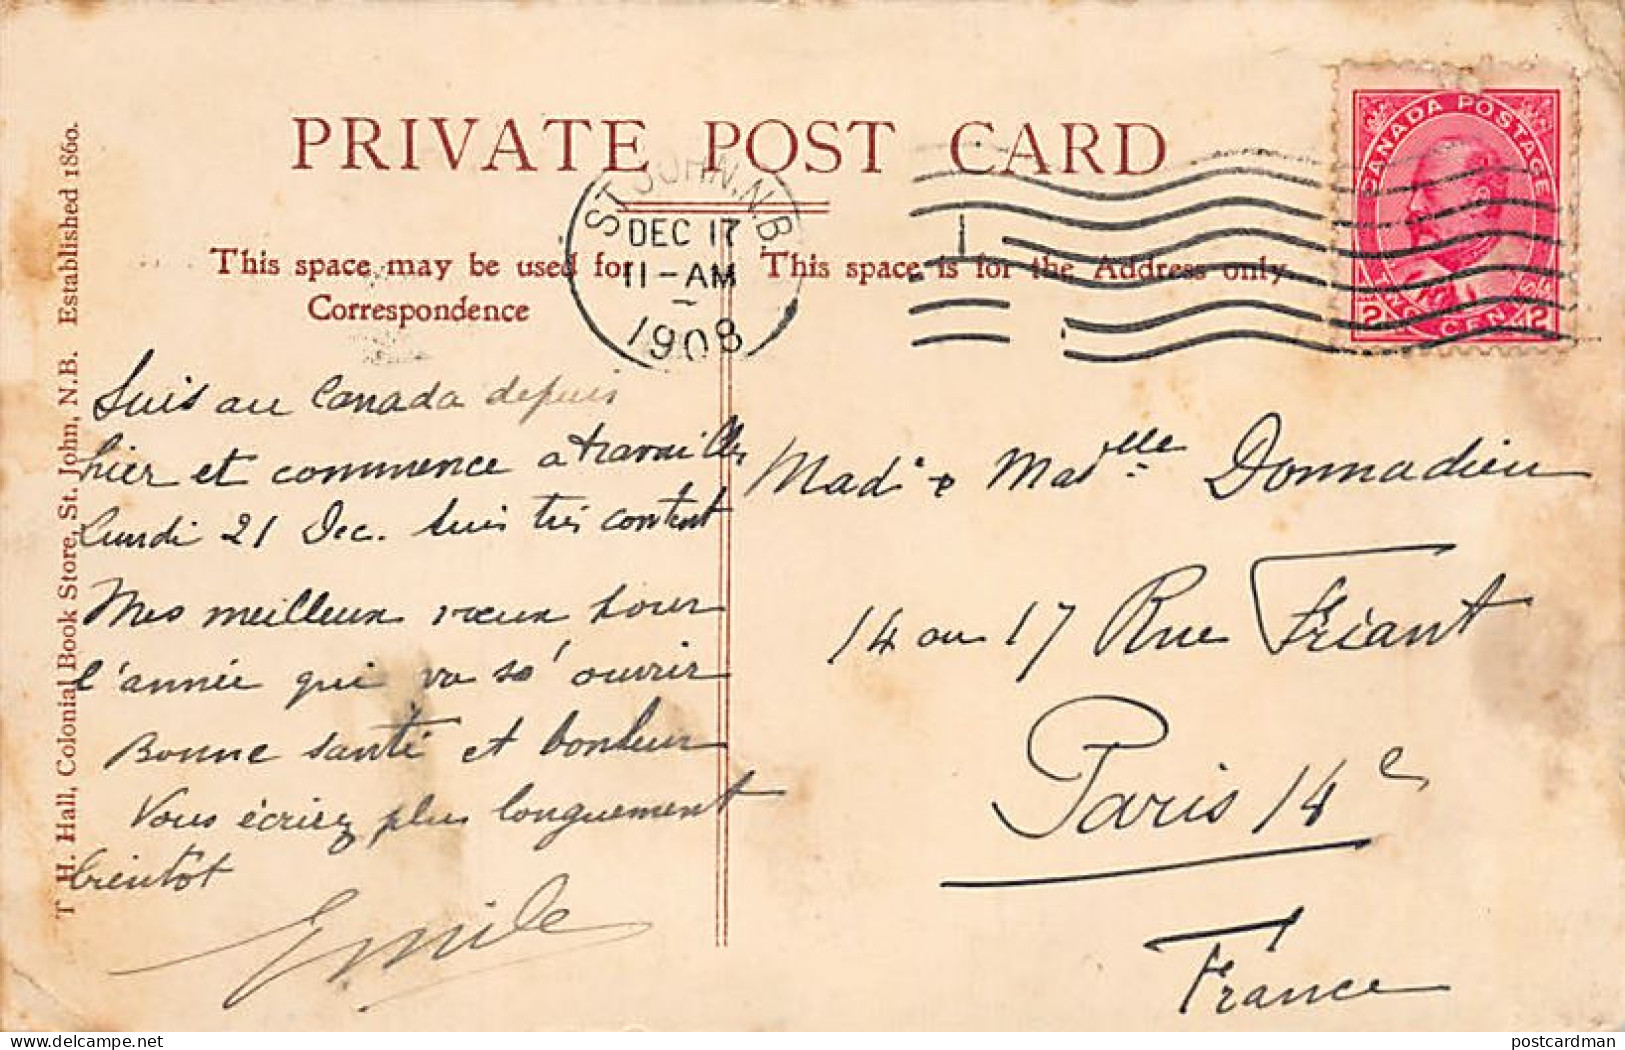 PRIVATE POST CARD
ST JOHN, N.B.
DEC 17
11-AM
1908
CANADA POSTAGE
2 TWO CENTS 2
This space may be used for
Correspondence
This space is for the Address only.
T. H. Hall, Colonial Book Store, St. John, N.B. Established 1860.
Suis au Canada depuis
hier et commence a travailler
Lundi 21 Dec. Suis très content
Mes meilleux vœux pour
l'année qui va s'ouvrir
Bonne santé et bonheur
Vous écrirez plus longuement
bientôt
Emile
Mad. & Madelle Donnadieu
14 ou 17 Rue Friant
Paris 14e
France
postcardman